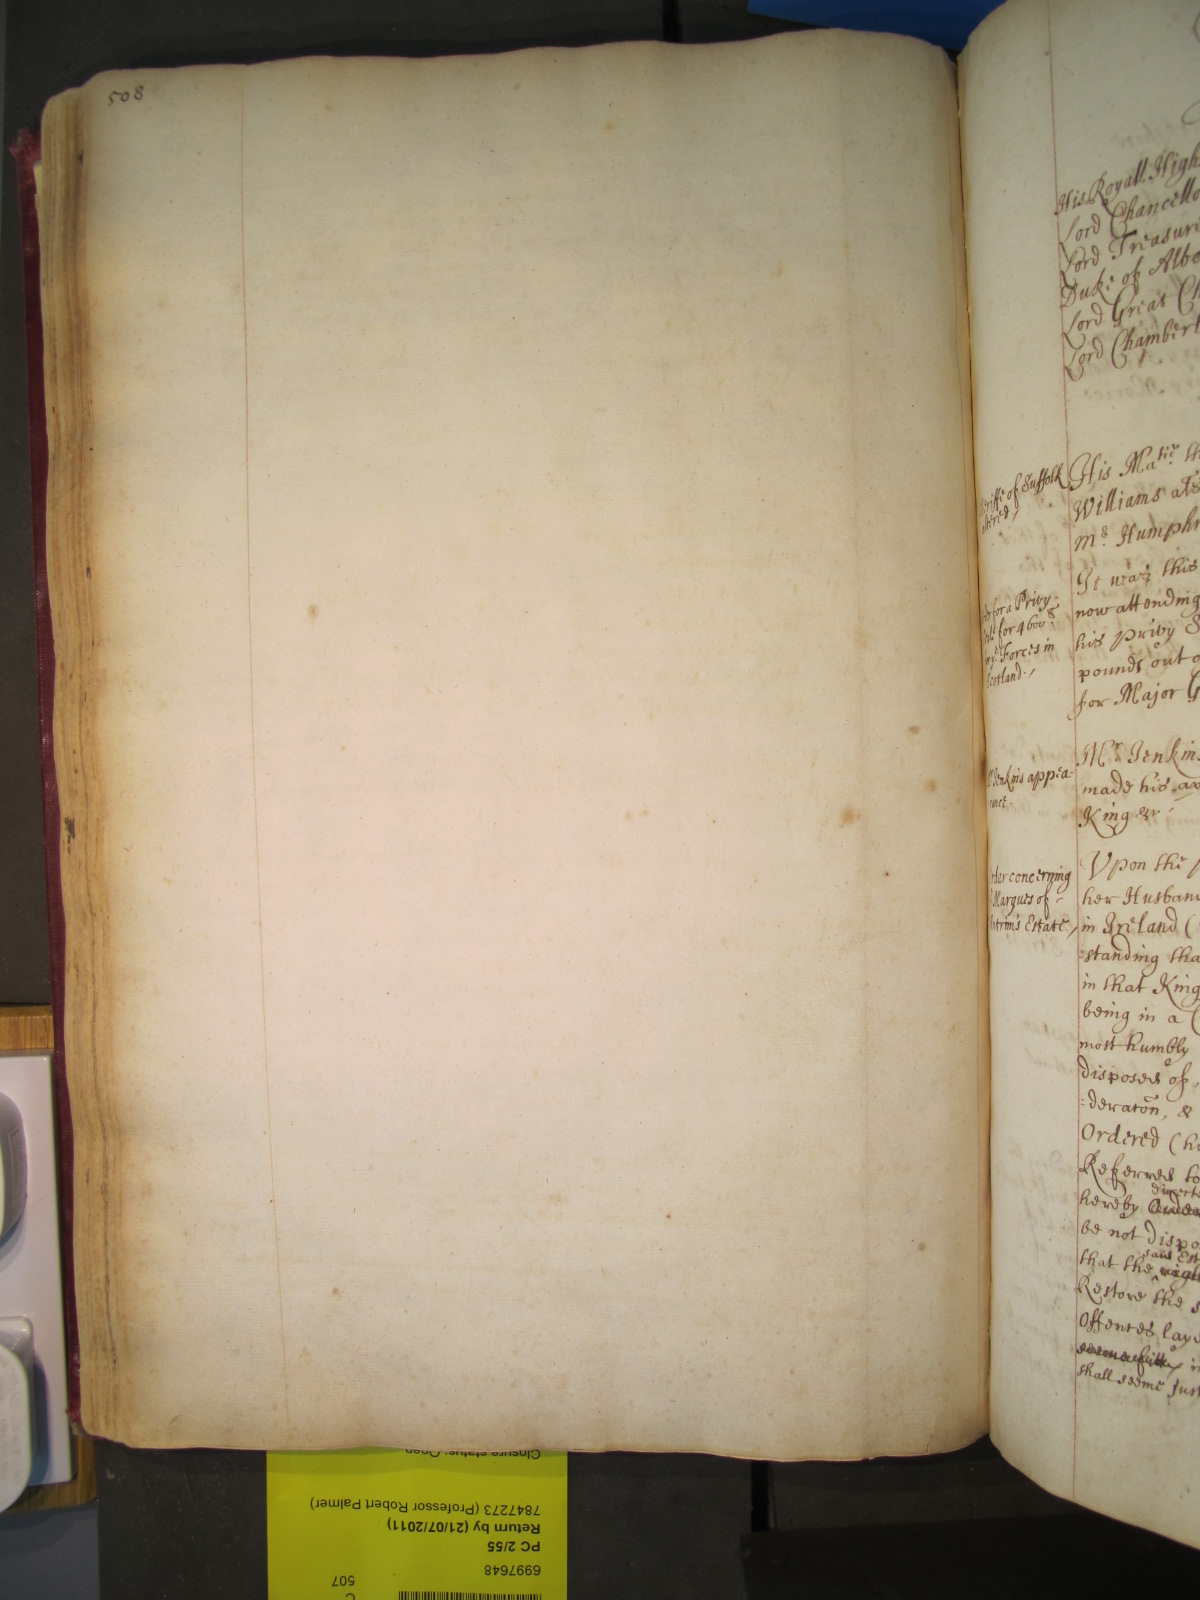 508
His Royall High
Lord Chancello
Lord Treasur
Duke of Albe
Lord Great Ch
Lord Chamberl
riffe of Suffolk
altered /
His Ma.tie th
Williams als
Mr. Humphr
for a Privy
for 4600
ye. Forces in
Scotland. /
It was this
now attending
his privy S
pounds out o
for Major G
Jenkins appea-
rance.
Mr. Jenkin
made his ap
King &c
der concerning
Marques of
ntrim's Estate /
Upon the p
her Husban
in Ireland (
=standing tha
in that King
being in a (
most humbly
disposed of,
=deraton, &
Ordered (he
Referred to
directe
hereby Order
be not dispo
said Est
that the right
Restore the s
Offences laye
in
shall seeme Just
Closure status: Open
7847273 (Professor Robert Palmer)
Return by (21/07/2011)
PC 2/55
6997648
507
C